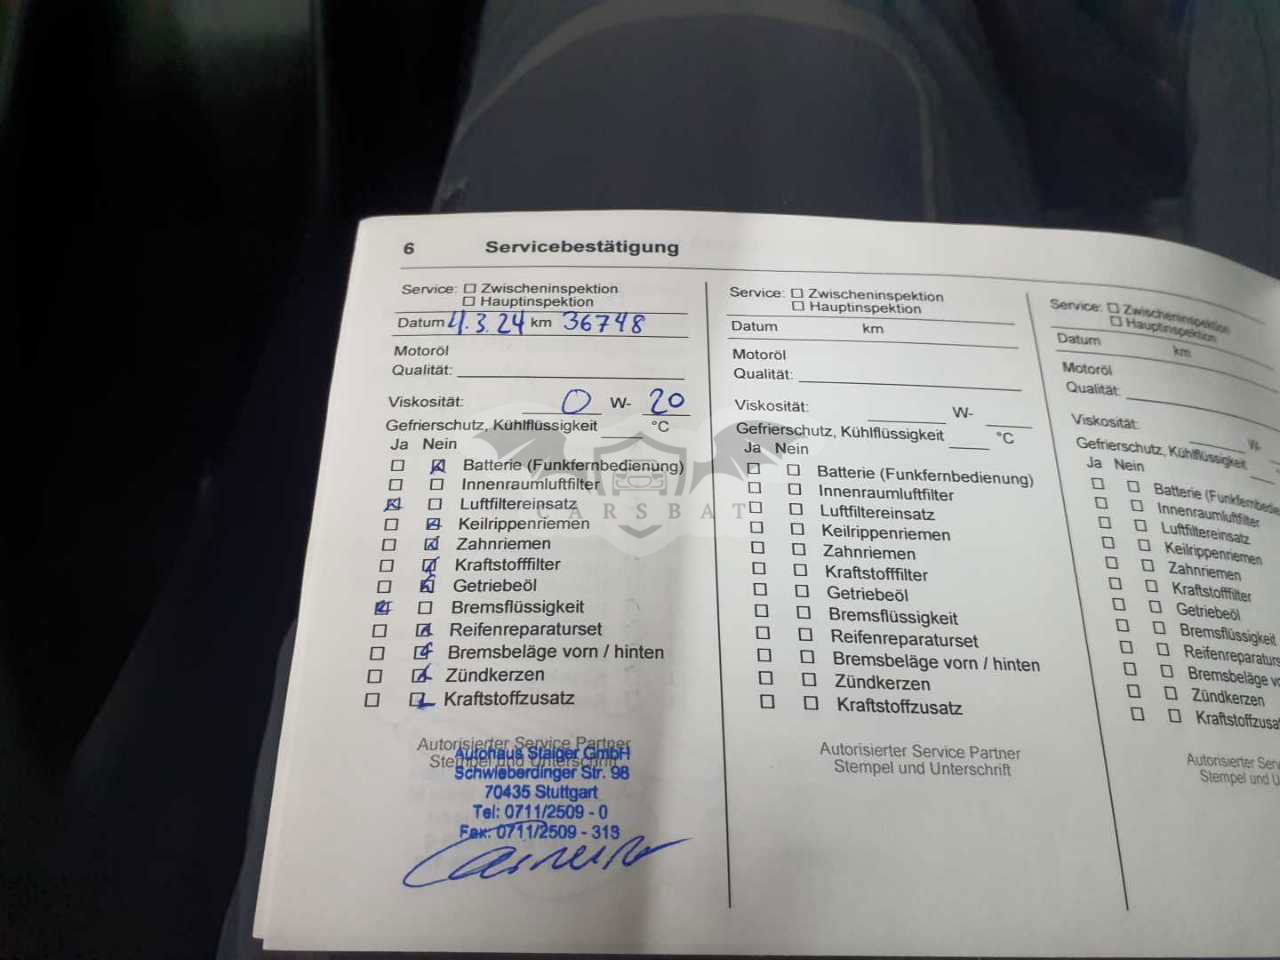 6 Servicebestätigung
Service: ☐ Zwischeninspektion
☐ Hauptinspektion
Datum 4.3.24 km 36748
Motoröl
Qualität:
Viskosität: 0 W- 20
Gefrierschutz, Kühlflüssigkeit °C
Ja Nein
☐ ☒ Batterie (Funkfernbedienung)
☐ ☐ Innenraumluftfilter
☒ ☐ Luftfiltereinsatz
☐ ☒ Keilrippenriemen
☐ ☒ Zahnriemen
☐ ☒ Kraftstofffilter
☐ ☒ Getriebeöl
☒ ☐ Bremsflüssigkeit
☐ ☒ Reifenreparaturset
☐ ☒ Bremsbeläge vorn / hinten
☐ ☒ Zündkerzen
☐ ☒ Kraftstoffzusatz
Autorisierter Service Partner
Stempel und Unterschrift
Autohaus Staiger GmbH
Schwieberdinger Str. 98
70435 Stuttgart
Tel: 0711/2509 - 0
Fax: 0711/2509 - 313
Service: ☐ Zwischeninspektion
☐ Hauptinspektion
Datum km
Motoröl
Qualität:
Viskosität: W-
Gefrierschutz, Kühlflüssigkeit °C
Ja Nein
☐ ☐ Batterie (Funkfernbedienung)
☐ ☐ Innenraumluftfilter
☐ ☐ Luftfiltereinsatz
☐ ☐ Keilrippenriemen
☐ ☐ Zahnriemen
☐ ☐ Kraftstofffilter
☐ ☐ Getriebeöl
☐ ☐ Bremsflüssigkeit
☐ ☐ Reifenreparaturset
☐ ☐ Bremsbeläge vorn / hinten
☐ ☐ Zündkerzen
☐ ☐ Kraftstoffzusatz
Autorisierter Service Partner
Stempel und Unterschrift
Service: ☐ Zwischeninspektion
☐ Hauptinspektion
Datum km
Motoröl
Qualität:
Viskosität: W-
Gefrierschutz, Kühlflüssigkeit
Ja Nein
☐ ☐ Batterie (Funkfernbedie
☐ ☐ Innenraumluftfilter
☐ ☐ Luftfiltereinsatz
☐ ☐ Keilrippenriemen
☐ ☐ Zahnriemen
☐ ☐ Kraftstofffilter
☐ ☐ Getriebeöl
☐ ☐ Bremsflüssigkeit
☐ ☐ Reifenreparaturs
☐ ☐ Bremsbeläge vo
☐ ☐ Zündkerzen
☐ ☐ Kraftstoffzusa
Autorisierter Serv
Stempel und U
CARSBAT